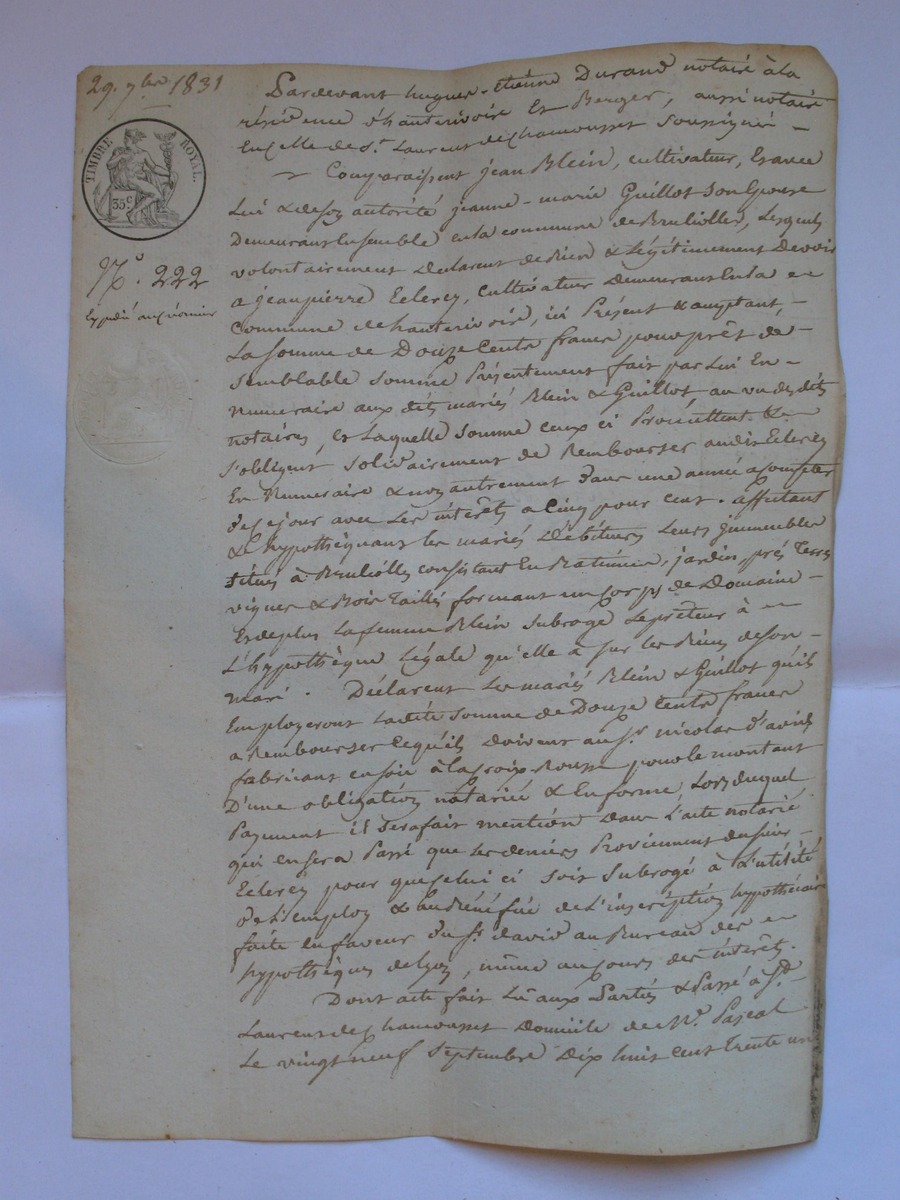 29. 7bre 1831
TIMBRE ROYAL.
35c
N.o 222
Expédié au créancier
Pardevant hugues-étiènne Durand notaire à la
résidence d'hauterivoire Et Berger, aussi notaire
En celle de St. Laurent de chamousset soussignés -
Comparaissent jean Blein, cultivateur, Et avec
Lui & de son autorité jeanne-marie Guillot son Epouse
Demeurans Ensemble en la commune de Brulioller, Lesquels
volontairement Declarent de Bien & Légitimement Devoir
a jean pierre Eclercy, cultivateur Demeurant En la
Commune de hauterivoire, ici Présent & acceptant, -
La somme de Douze Cents francs pour prêt de -
Semblable somme Présentement fait par Lui En -
numeraire aux dits mariés Blein & Guillot, au vu des dits
notaires, Et Laquelle somme ceux ci Promettent &
S'obligent solidairement de Rembourser audit Eclercy
En Numeraire & non autrement Dans une année a compter
de ce jour avec Les intérêts a Cinq pour cent. affectant
& hypothèquant les mariés Débiteurs Leurs immeubles
situés à Bruliolles consistant En Batimens, jardin, prés Terres
vignes & Bois Taillis formant un Corps de Domaine -
Et de plus La femme Blein subroge Le prêteur à
L'hypothèque Légale qu'elle à sur les Biens de son -
mari. Déclarent Les mariés Blein & Guillot qu'ils
Employeront Ladite somme de Douze Cents francs
a Rembourser Ce qu'ils doivent au Sr. nicolas David
fabricant en soie à la croix-Rousse pour le montant
D'une obligation notariée & En forme, Lors duquel
Payement il sera fait mention Dans L'acte notarié
qui en sera Passé que Les deniers Proviennent du sieur -
Eclercy pour que celui ci soit subrogé à L'utilité
de L'employ & au Bénéfice de L'inscription hypothécaire
faite en faveur du Sr. david au Bureau des
hypothèques de Lyon, même au cours des intérêts.
Dont acte fait Lu aux Parties & Passé à St.
Laurent de chamousset Domicile de Me. Pascal
Le vingt neuf septembre Dix huit cent trente un